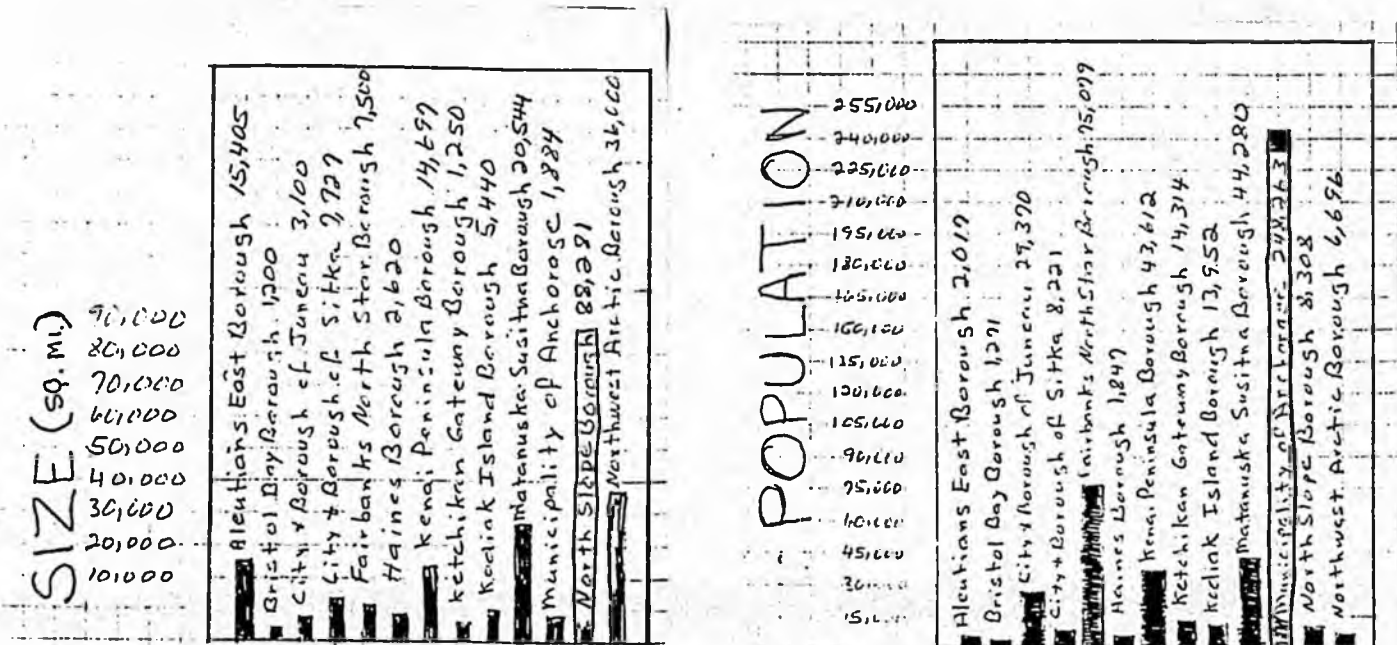 SIZE (SQ. MI.)
90,000
80,000
70,000
60,000
50,000
40,000
30,000
20,000
10,000
Aleutians East Borough 15,405
Bristol Bay Borough 1,200
City & Borough of Juneau 3,100
City & Borough of Sitka
Fairbanks North Star Borough 7,500
Haines Borough 2,620
Kenai Peninsula Borough 14,697
Ketchikan Gateway Borough 1,250
Kodiak Island Borough 5,440
Matanuska-Susitna Borough 20,544
Municipality of Anchorage 1,884
North Slope Borough 88,281
Northwest Arctic Borough 36,000
POPULATION
255,000
240,000
225,000
210,000
195,000
180,000
165,000
135,000
120,000
105,000
90,000
75,000
60,000
45,000
Aleutians East Borough 2,017
Bristol Bay Borough 1,271
City & Borough of Juneau 29,370
City & Borough of Sitka 8,221
Fairbanks North Star Borough 75,079
Haines Borough 1,847
Kenai Peninsula Borough 43,612
Ketchikan Gateway Borough 14,314
Kodiak Island Borough 13,952
Matanuska Susitna Borough 44,280
Municipality of Anchorage 248,263
North Slope Borough 8,308
Northwest Arctic Borough 6,696